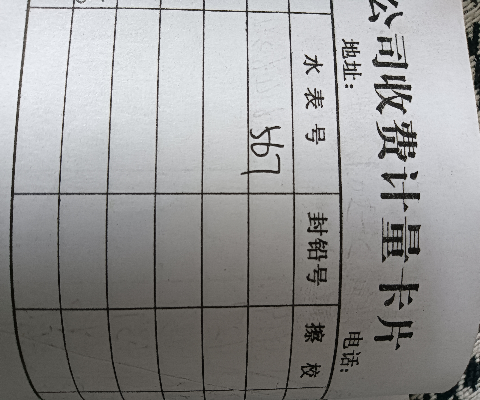 公司收费计量卡片
地址： 电话：
水表号 封铅号 擦校
567